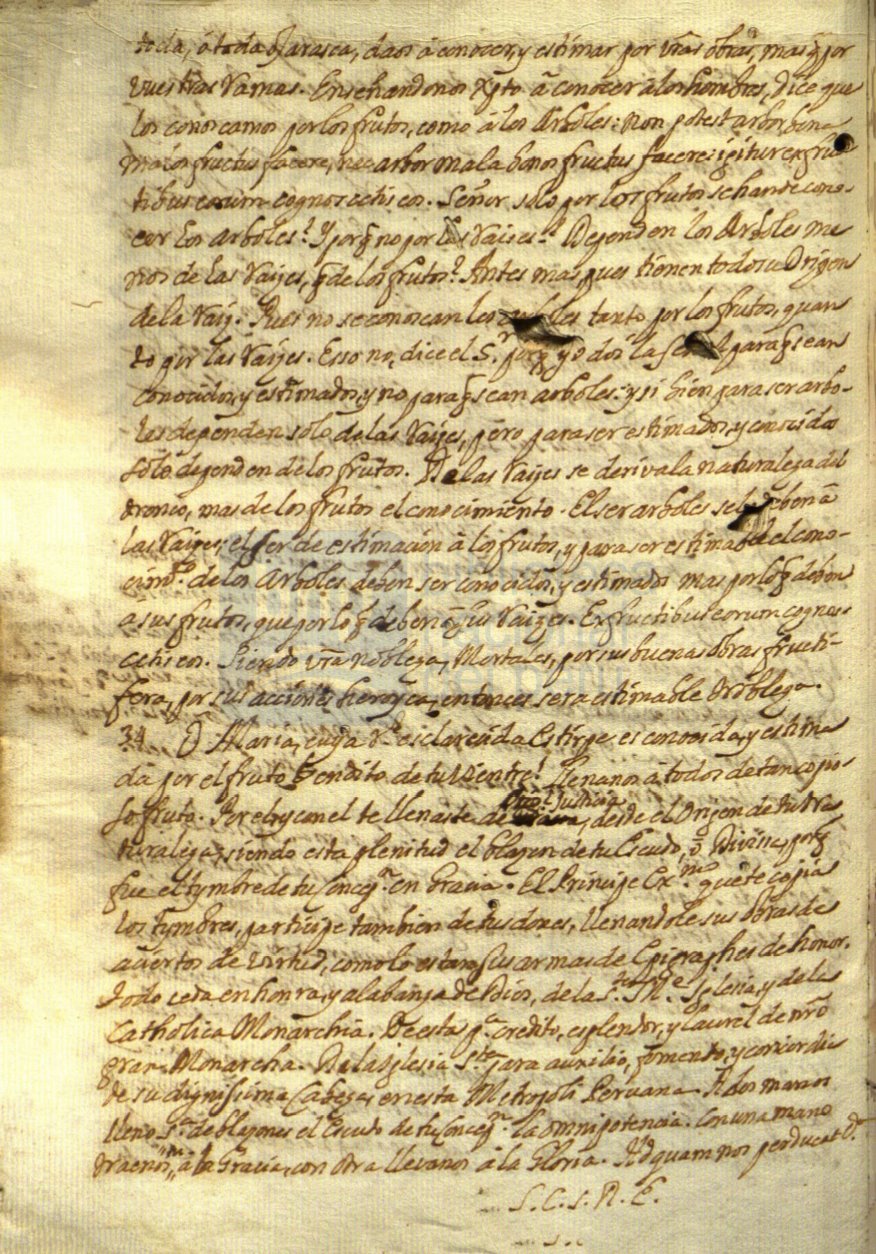 toda, ó toda ojarasca, daos á conocer, y estimar por vras obras, mas q̃ por
vuestras Ramas. Enseñandonos Xp̃to á conocer á los hombres, dice que
los conoscamos por los frutos, como á los Arboles: non potest arbor bona
malos fructus facere, nec arbor mala bonos fructus facere: igitur ex fru
tibus eorum cognoscetis eos. Señor solo por los frutos se han de cono-
cer los arboles? Y porq̃ no por las Raises? Dependen los Arboles me
nos de las Raijes, q̃ de los frutos? Antes mas, pues tienen todo su Origen
de la Raij. Pues no se conoscan los tanto por los frutos, quan
to por las Raijes. Esso no, dice el S.r porq̃ yo dos la para q̃ sean
conocidos, y estimados, y no para q̃ sean arboles: y si bien para ser arbo-
les dependen solo de las Raijes, pero para ser estimados, y conocidos
sólo dependen de los frutos. De las Raijes se deriva la naturaleza del
tronco, mas de los frutos el conocimiento. El ser arboles se lo deben á
las Raijes, el ser de estimación á los frutos, y para ser estimable el cono-
cim.to de los Arboles deben ser conocidos, y estimados mas por lo q̃ deben
a sus frutos, que por lo q̃ deben á sus Raizes. Ex fructibus eorum cognos-
cetis eos. Siendo vr̃a nobleza, Mortales, por sus buenas obras fructi-
fera, por sus acciones heroyca, entonces sera estimable Nobleza.
34 O Maria, cuya R.l esclarecida Estirpe es conocida, y estima
da por el fruto bendito de tu Vientre! llenanos á todos de tan copio-
so fruto. Por el, y con el te llenaste de Justicia, desde el Origen de tu Na
turaleza, siendo esta plenitud el blazon de tu Escudo, ó Divina, porq̃
fue el tymbre de tu Concep.n en Gracia. El Principe Ex.mo que te copia
los tymbres, participe tambien de tus dones, llenandole sus obras de
aciertos de virtud, como lo estan sus armas de Epigraphes de honor.
todo ceda en honra, y alabanza de Dios, de la S.ta M.e Iglesia, y de la
Catholica Monarchia. De esta p.a credito, esplendor, y laurel de nr̃o
gran Monarcha. De la Iglesia S.ta para auxilio, fomento, y concordia
de su dignissima Cabeza en esta Metropoli Peruana. A dos manos
lleno S.a de blazones el Escudo de tu Concep.n la omnipotencia. Con una mano
traenos á la Gracia, con otra llevanos á la Gloria. Ad quam nos perducat D.s
S. C. S. R. E.